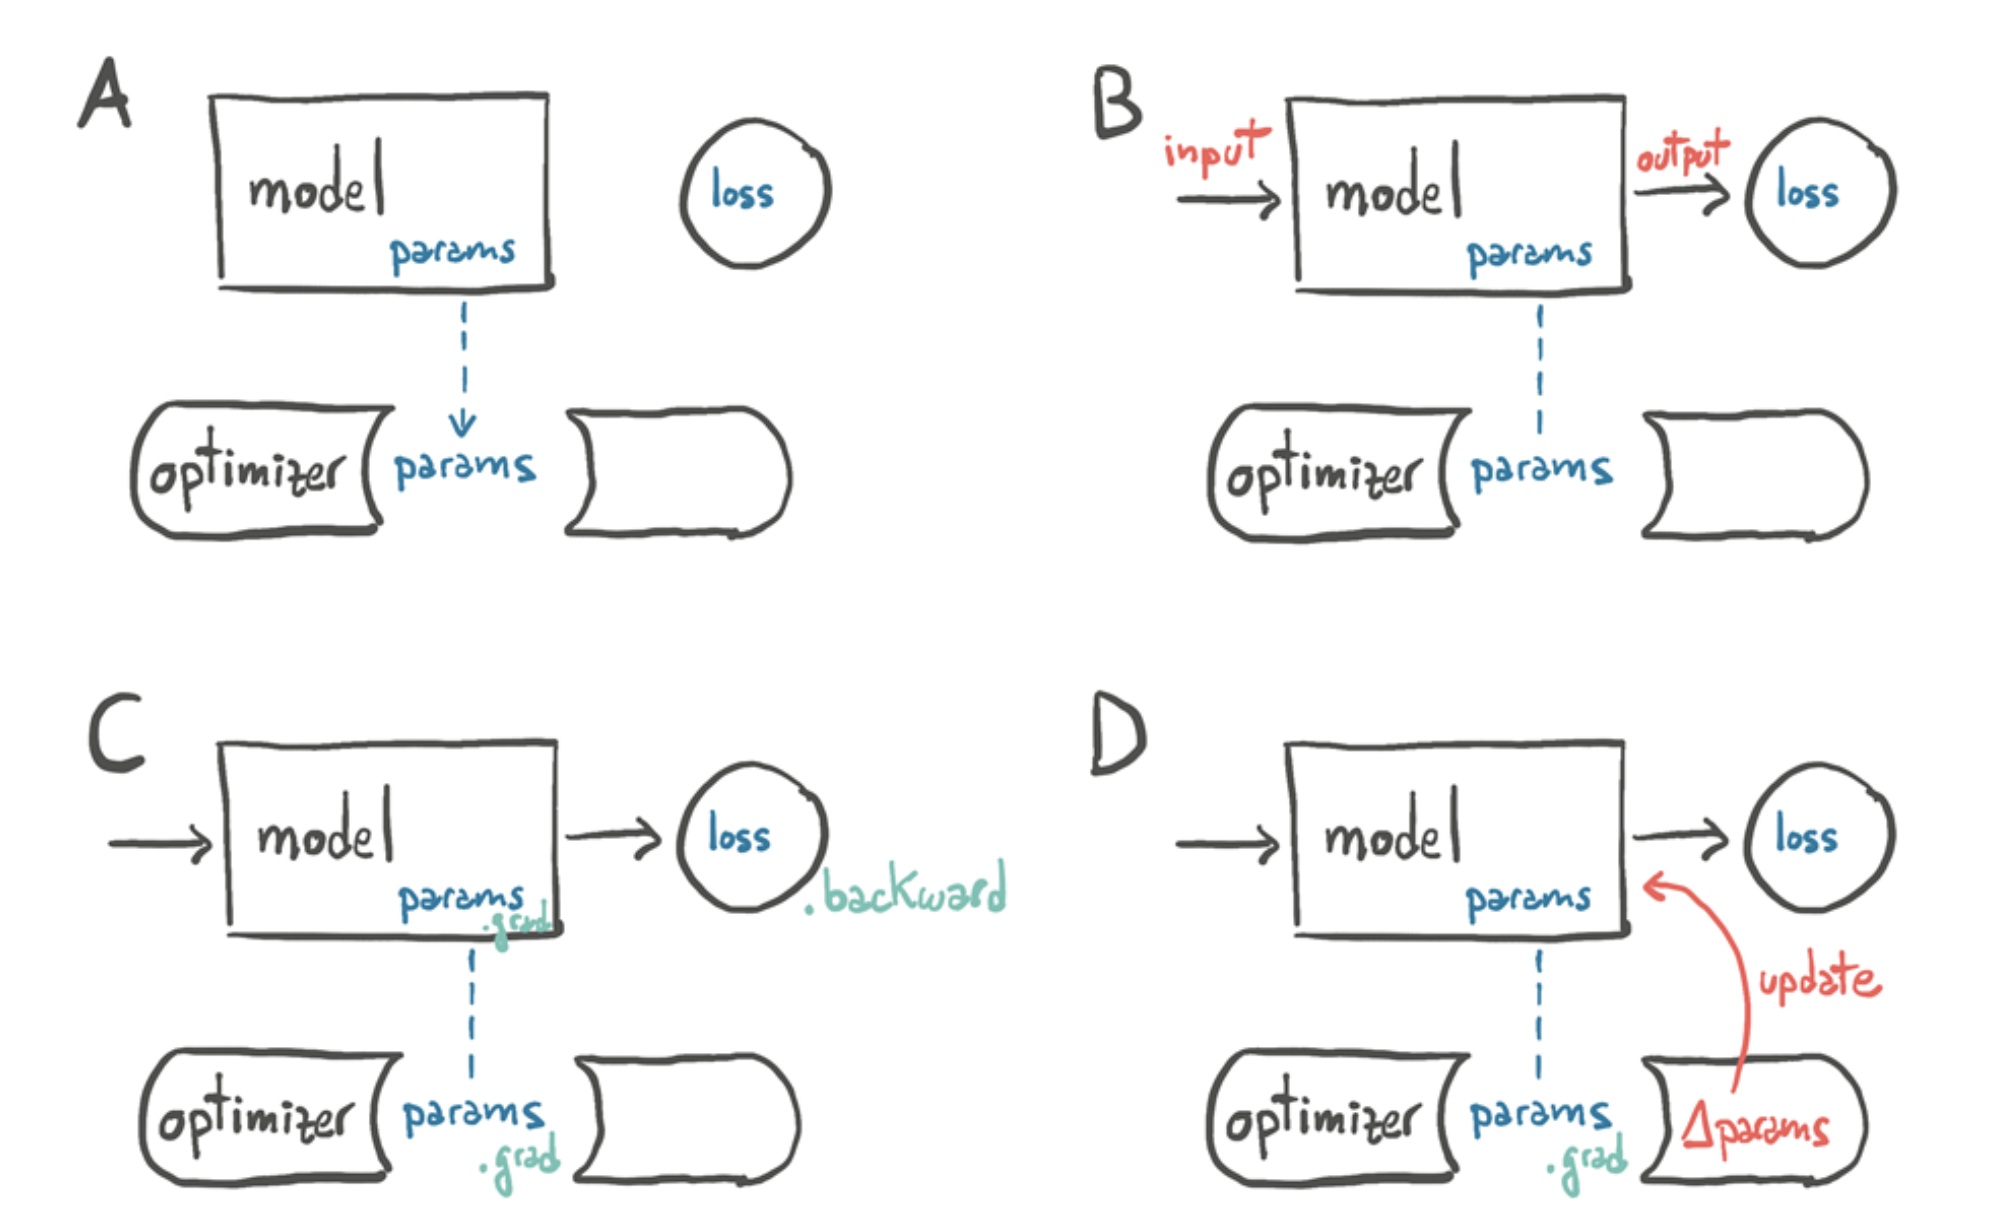 A
model
params
loss
optimizer
params
B
input
model
params
output
loss
optimizer
params
C
model
params
.grad
loss
.backward
optimizer
params
.grad
D
model
params
loss
update
optimizer
params
.grad
Δparams